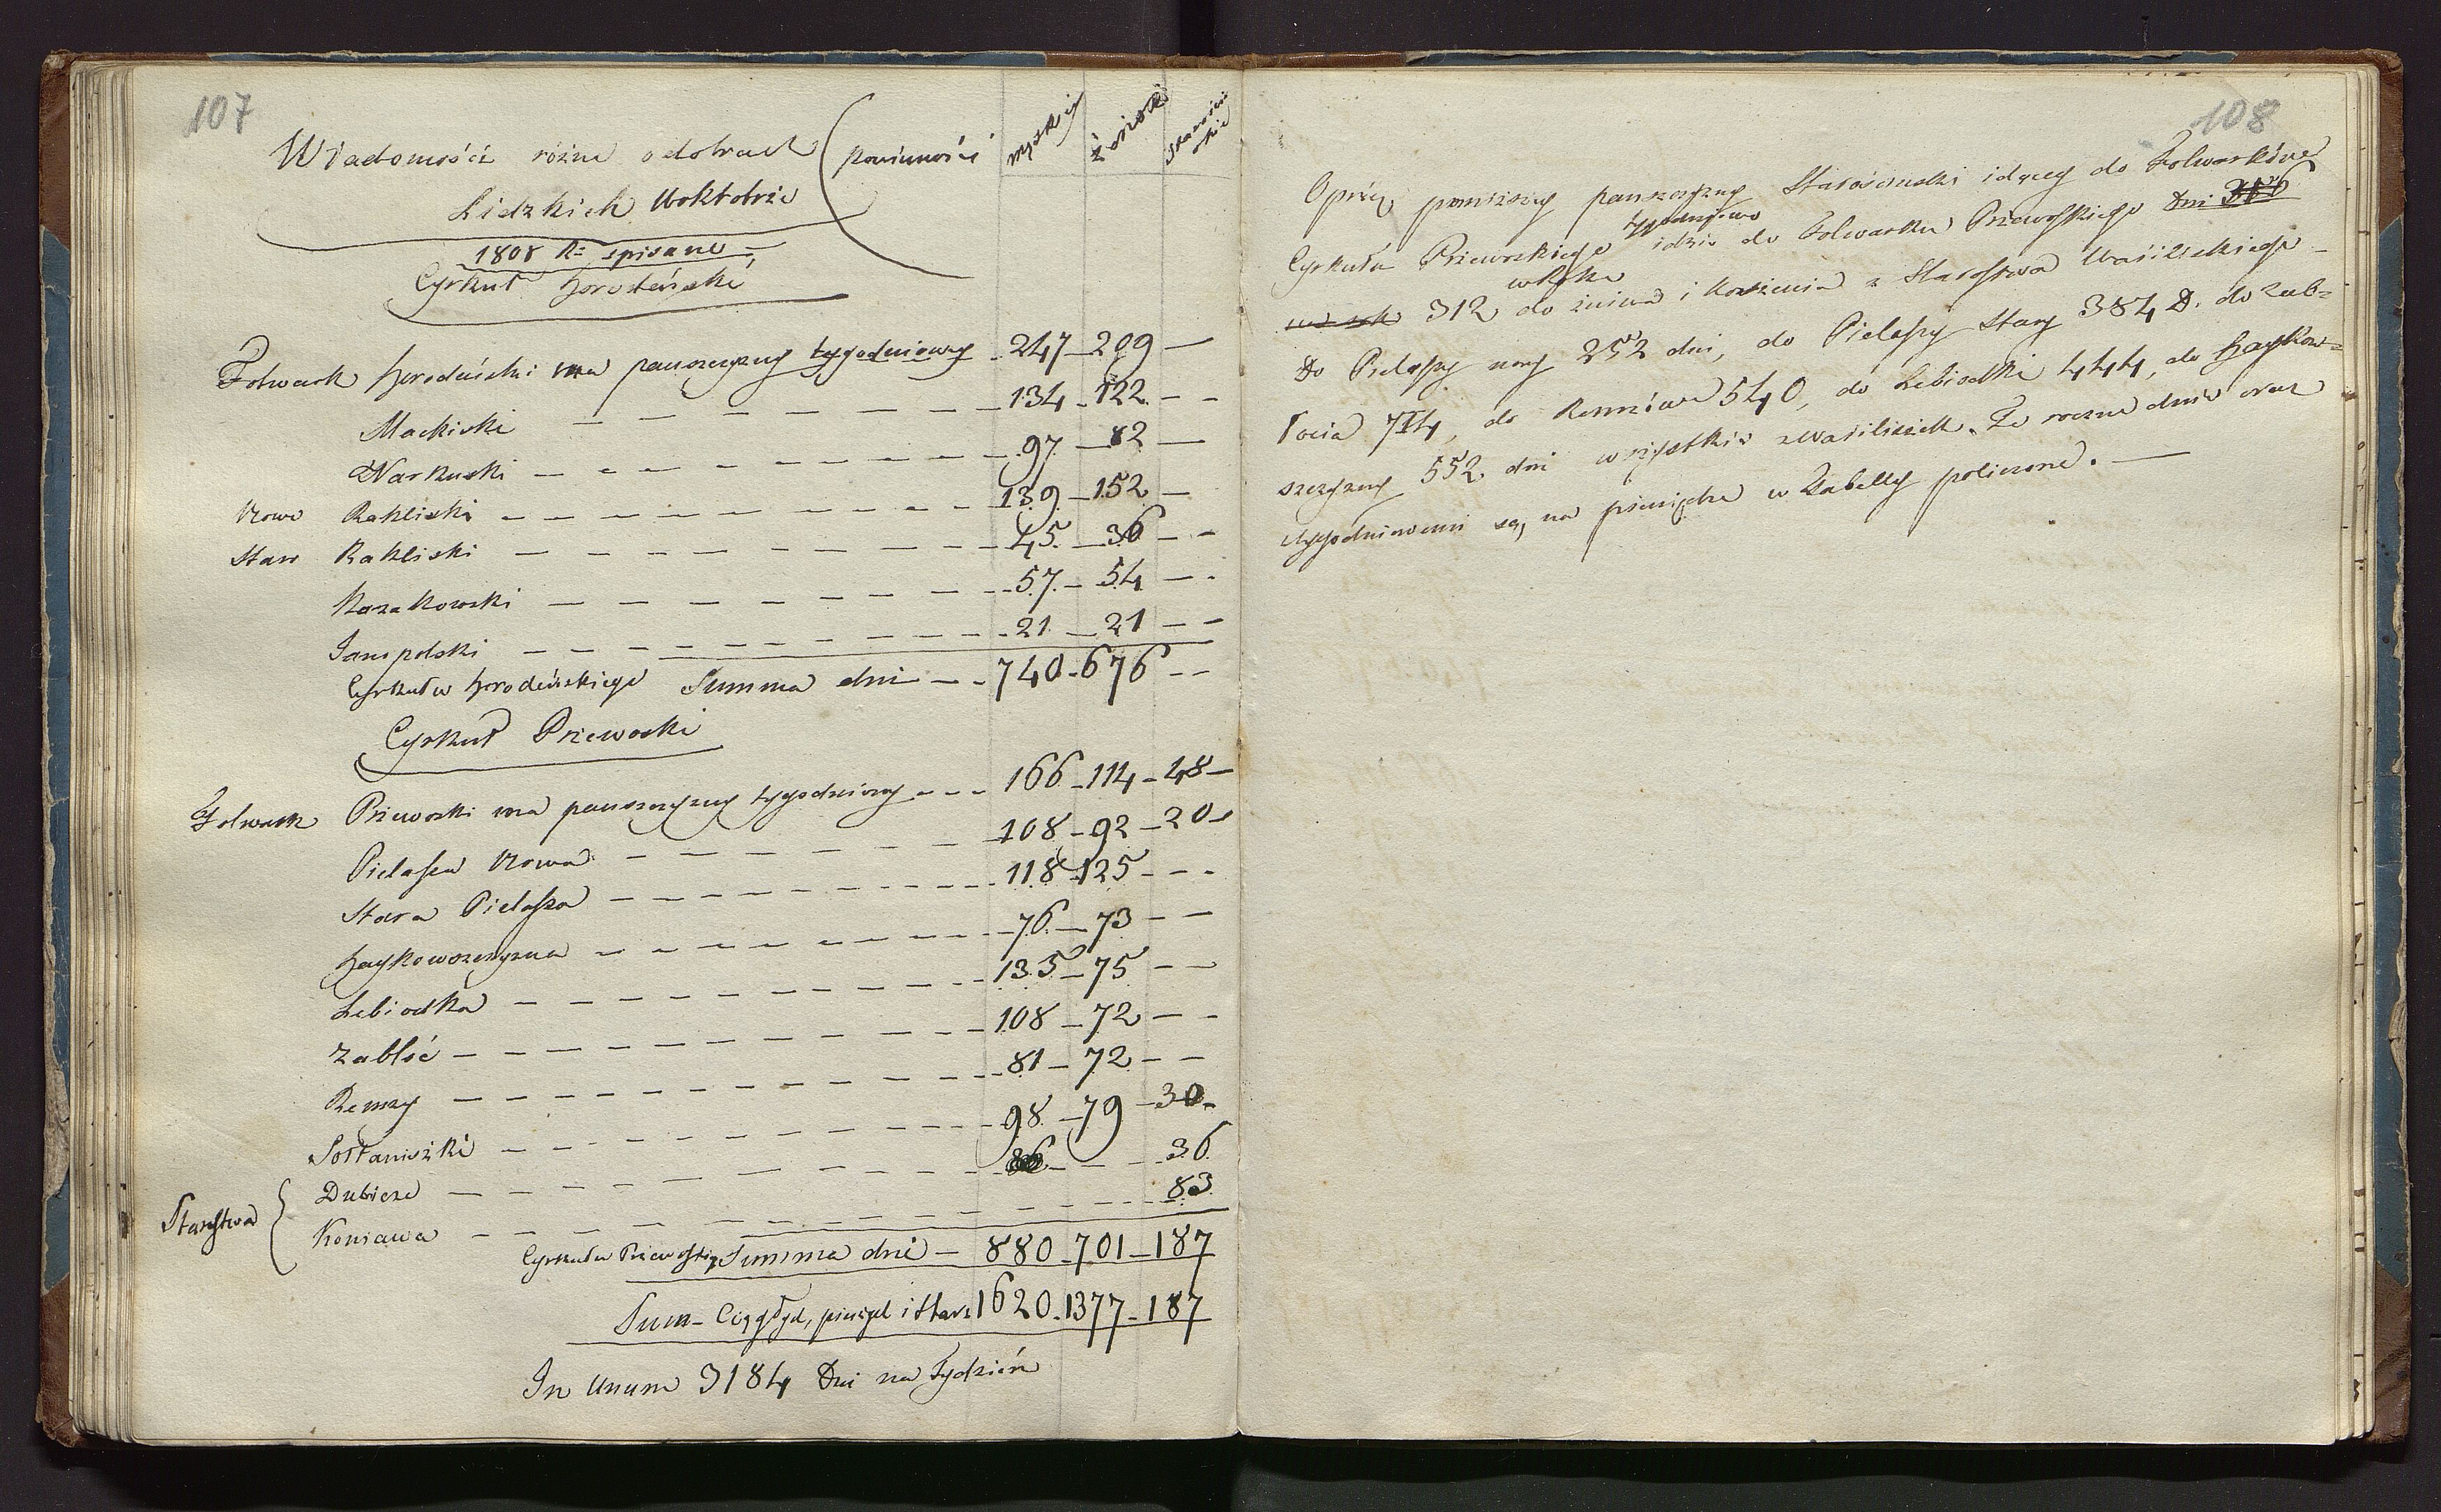 107
Wiadomości różne o dobrach
Lidzkich w oktobrze
1808 R: spisane
powinności
męzkiey
żeńskiey
Cyrkuł Horodeński
Folwark Horodeński ma panszczyzny tygodniowey 247 209 —
Mackiski — — — 134 122 — -
Narkuski — — — 97 82 —
Nowo Rakliski — — — 139 152 —
Staro Rakliski — — — 45 36 — -
Kozakowski — — — 57 54 — -
Jampolski — — — 21 21 — -
Cyrkułu Horodeńskiego Summa dni — 740 676 — -
Cyrkuł Przeworski
Folwark Przeworski ma panszczyzny tygodniowy 166 114 48
Pielasza Nowa — — — 108 92 20
Stara Pielasza — — — 118 125 - - -
Haykowszczyzna — — — 76 73 — —
Lebiodka — — — 135 75 — —
Zabłoć — — — 108 72 — -
Remzy — — — 81 72 — —
Sołtaniszki — — — 98 79 30
Starostwa
Dubicze — — — 36
Koniawa — — — 83
Cyrkułu Przeworskiego Summa dni — 880 701 187
Sum- Ciągłych, pieszych i Staros 1620 1377 187
In Unum 3184 Dni na Tydzień
108
Oprócz pomienioney panszczyzny Starościnski idącey do Folwarków
Cyrkułu Przeworskiego tygodniowo idzie do Folwarku Przeworskiego Dni
w roku 312 do żniwa i koszenia z Starostwa Wasiliskiego
Do Pielaszy nowy 252 dni, do Pielaszy Stary 384 D. do Zab-
łocia 714, do Remzów 540, do Lebiodki 444, do Haykow-
szczyzny 552 dni wszystkie z Wasiliszek. Te roczne dnie oraz
tygodniowemi są, na pieniądze w Tabelly policzone. —